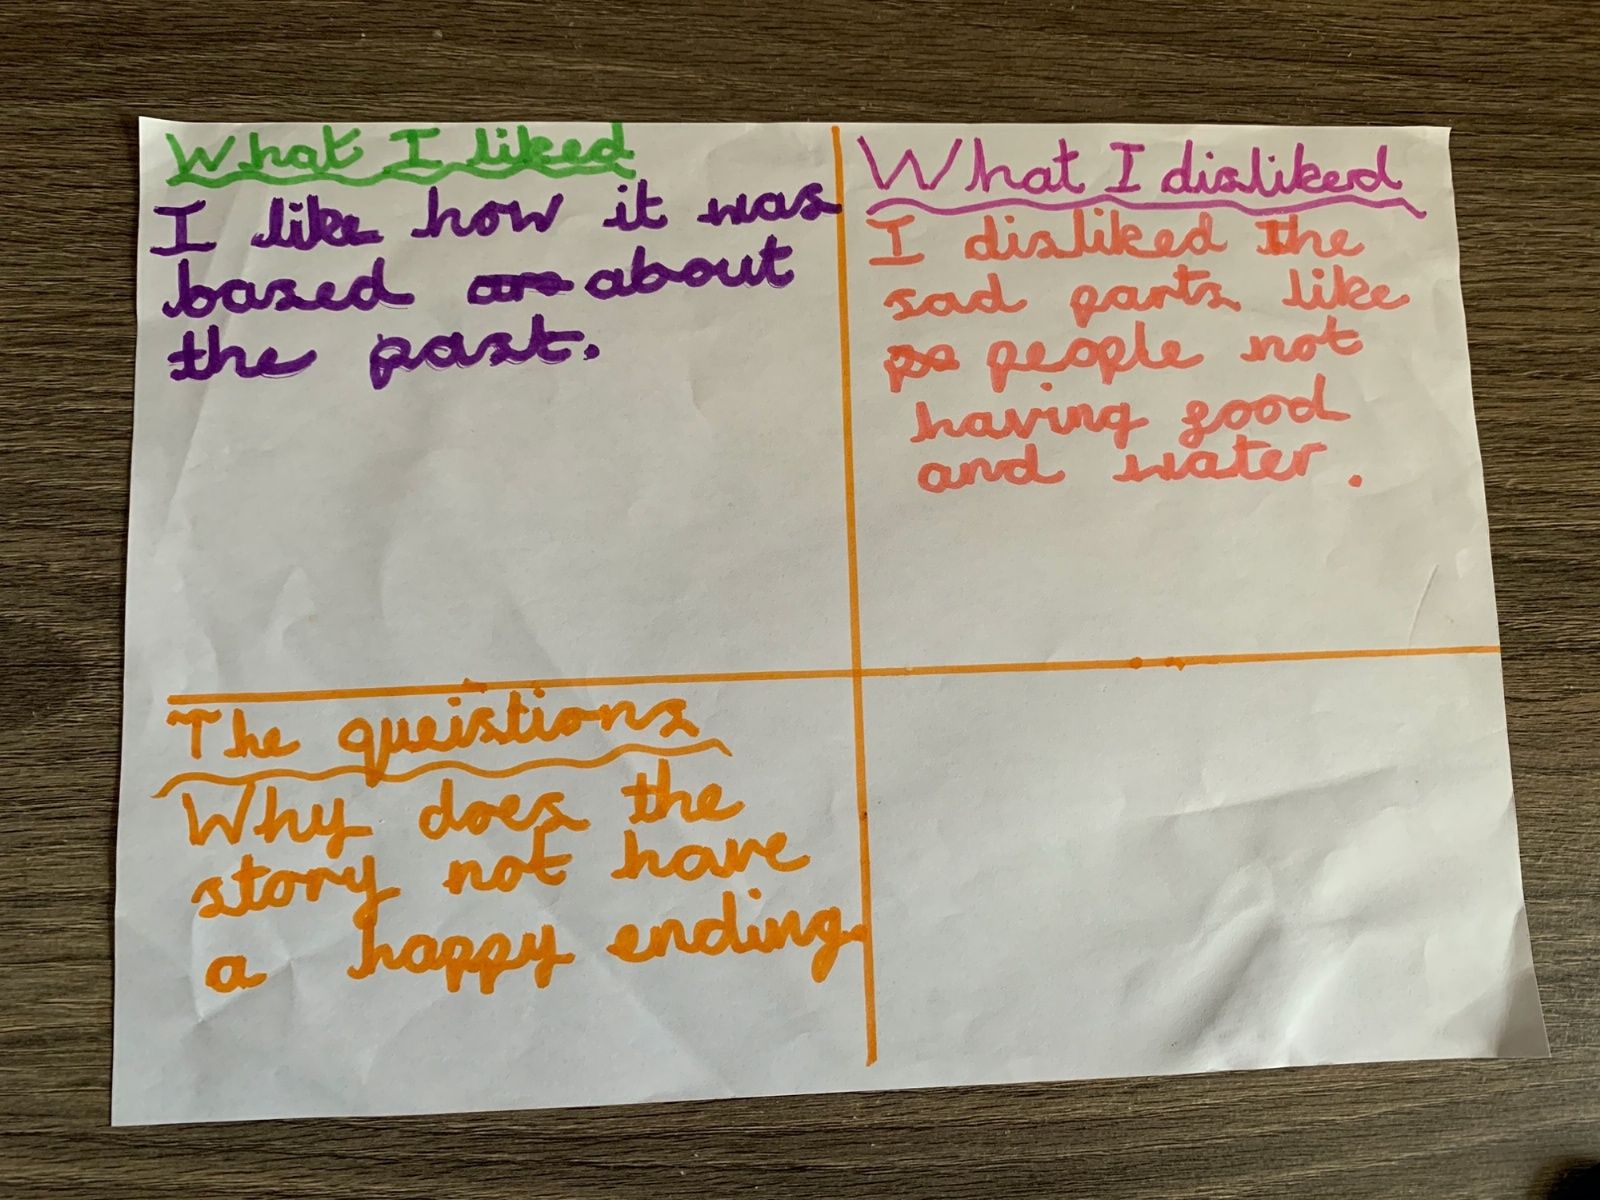 What I liked
I like how it was
based on about
the past.
What I disliked
I disliked the
sad parts like
pe people not
having food
and water.
The queistions
Why does the
story not have
a happy ending.